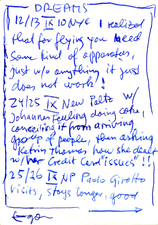 DREAMS
12/13 IX 10 NYC I realized
that for flying you need
some kind of apparatus,
just w/o anything it just
does not work!
24/25 IX New Paltz w/
Johannes Feuling doing coke,
concealing it from arriving
group of people, then asking
Katrin Thomas how she dealt
w/ her Credit Card "issues"!!
25/26 IX NP Paolo Girotto
visits, stays longer, good